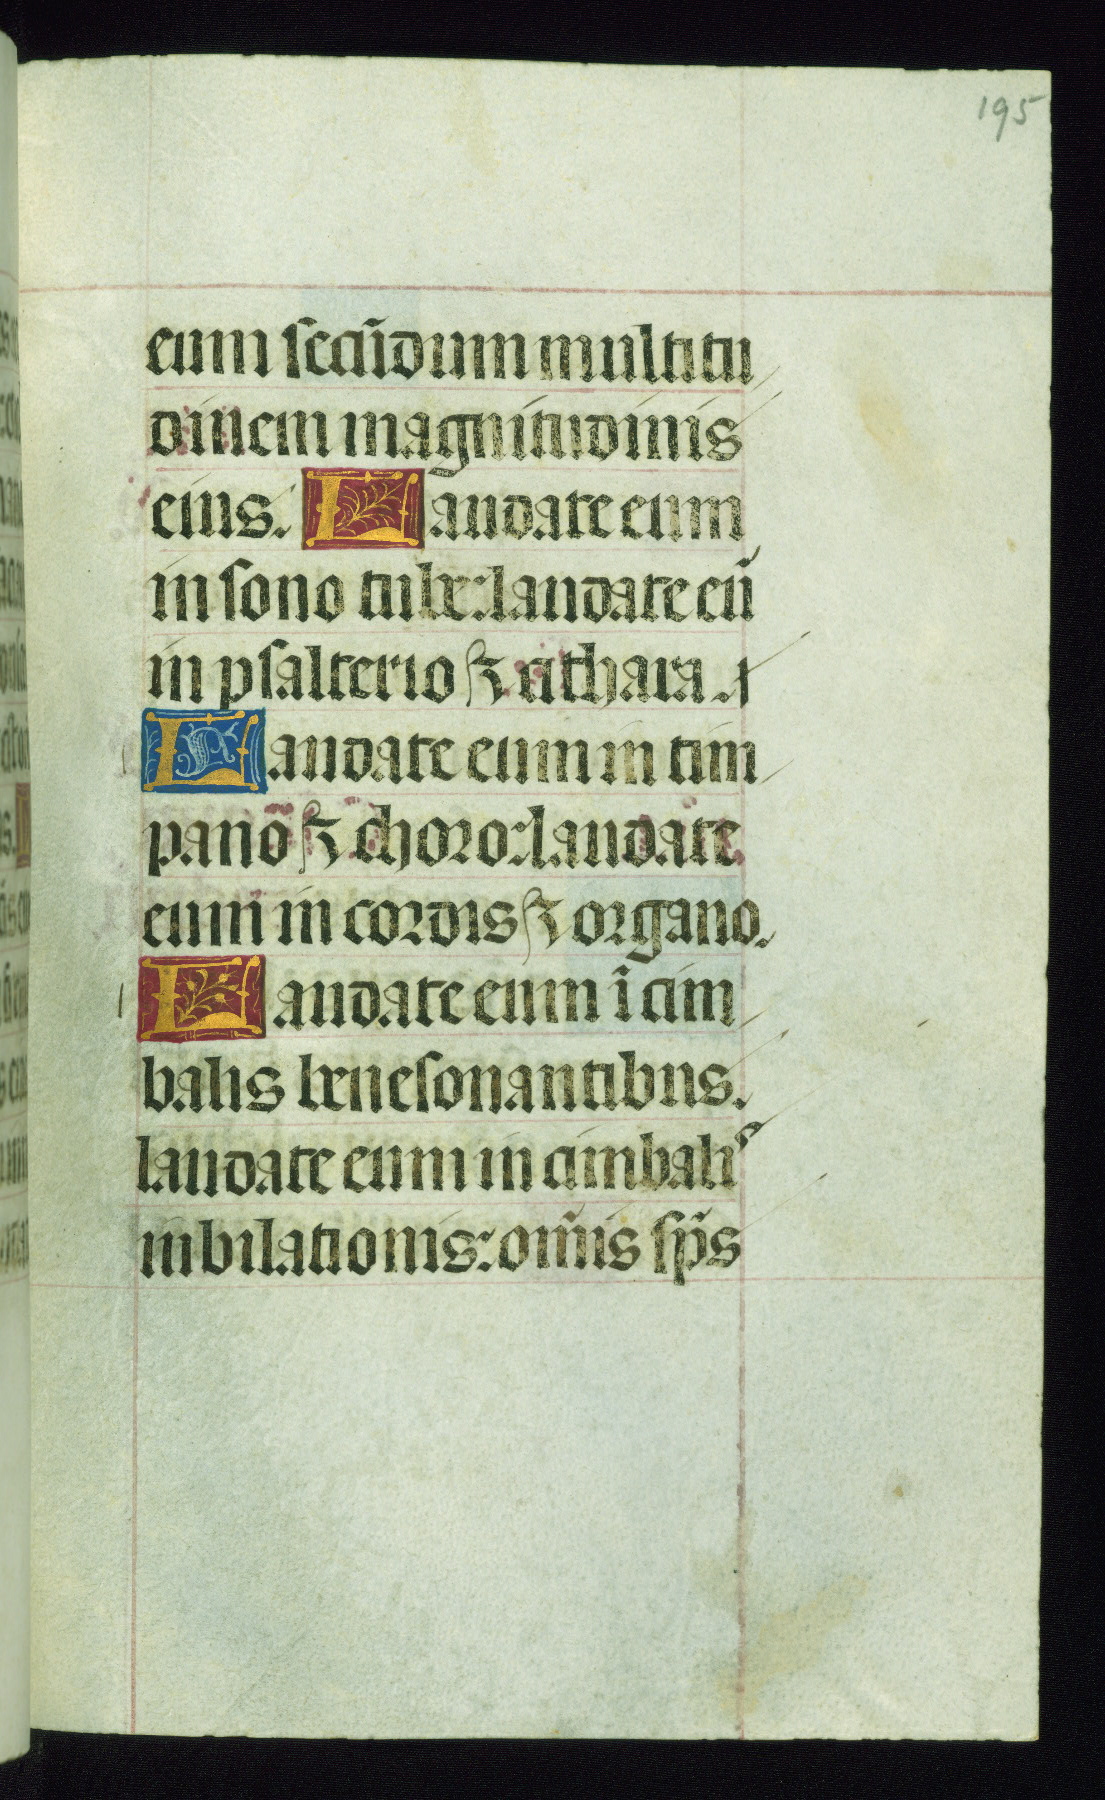 195
eum secūdum multitu
dinem magnitudinis
eius. Laudate eum
in sono tube: laudate eū
in psalterio ⁊ cithara.
Laudate eum in tim
pano ⁊ choro: laudate
eum in cordis ⁊ organo.
Laudate eum ī cim
balis benesonantibus.
laudate eum in cimbalis
iubilationis: om̄is sp̄s